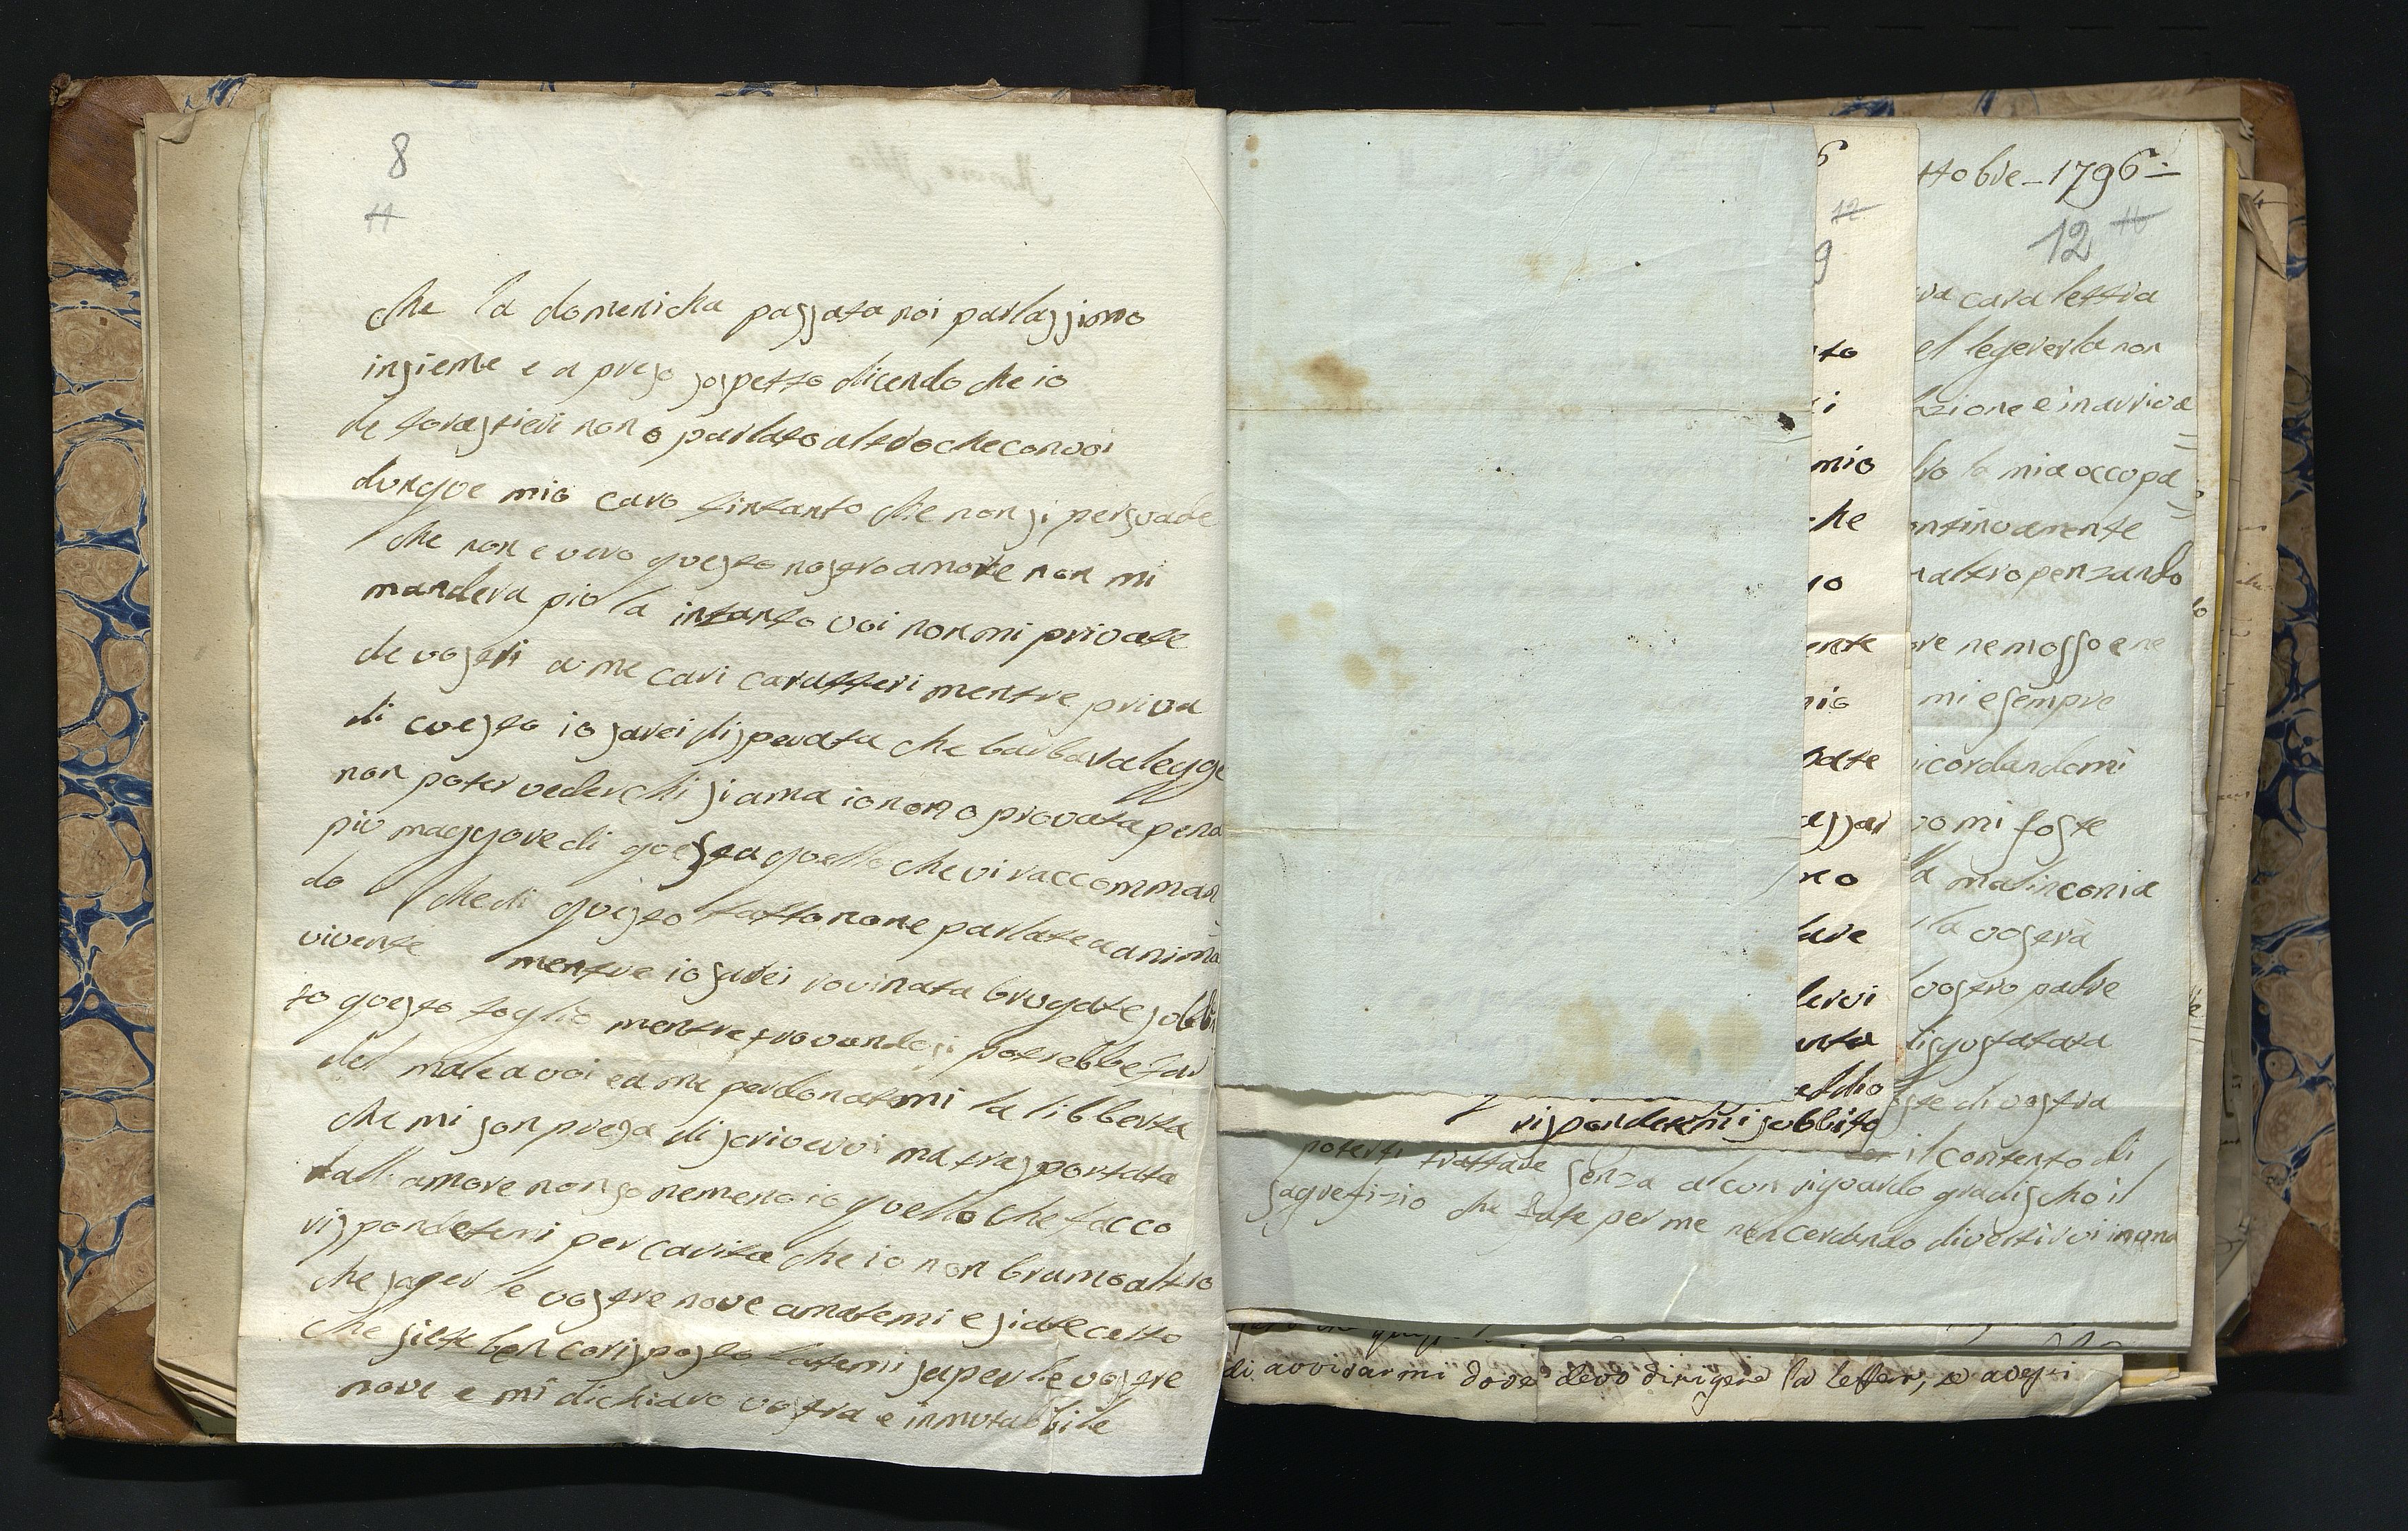 8
11
che la domenicha passata noi parlassimo
insieme e a preso sospetto dicendo che io
de forastieri non o parlato altro che con voi
dunque mio caro fintanto che non si persuade
che non e vero questo nostro amore non mi
mandera piu la intanto voi non mi private
de vostri a me cari caratteri mentre priva
di cuesto io sarei disperata che barbara legge
non poter veder chi si ama io non o provata pena
piu maggore di questa quello che vi raccomman
do che di questo fatto non e parlate a anima
vivente mentre io sarei rovinata brugate subbi
to questo foglio mentre trovandosi potrebbe far
del male a voi ea me perdonatemi la libberta
che mi son presa di scrivervi ma trasportata
dall amore non so nemeno io quello che facco
rispondetemi per carita che io non bramo altro
che saper le vostre nove amatemi e siate certo
che siete ben corisposto fatemi saper le vostre
nove e mi dichiaro vostra e inmutabbile
6
12
9
to
i
mio
che
no
ente
nio
date
assai
no
lare
lervi
anta
addio
rispondetemi subbito
ttobre - 1796
12 16
ra cara lettra
el legererla non
lazione e inarriva
tro la mia occopa
ontinuamente
naltro penzando
ore ne mosso e ne
mi e sempre
icordandomi
vo mi foste
la malinconia
la vostra
vostro padre
disgustatata
ste di vostra
il contento di
poterfi trattare senza alcun riguardo gradischo il
sagrefizio che fate per me non cercando divertirvi inuna
di avvisarmi dove devo dirigere la letter, se avessi